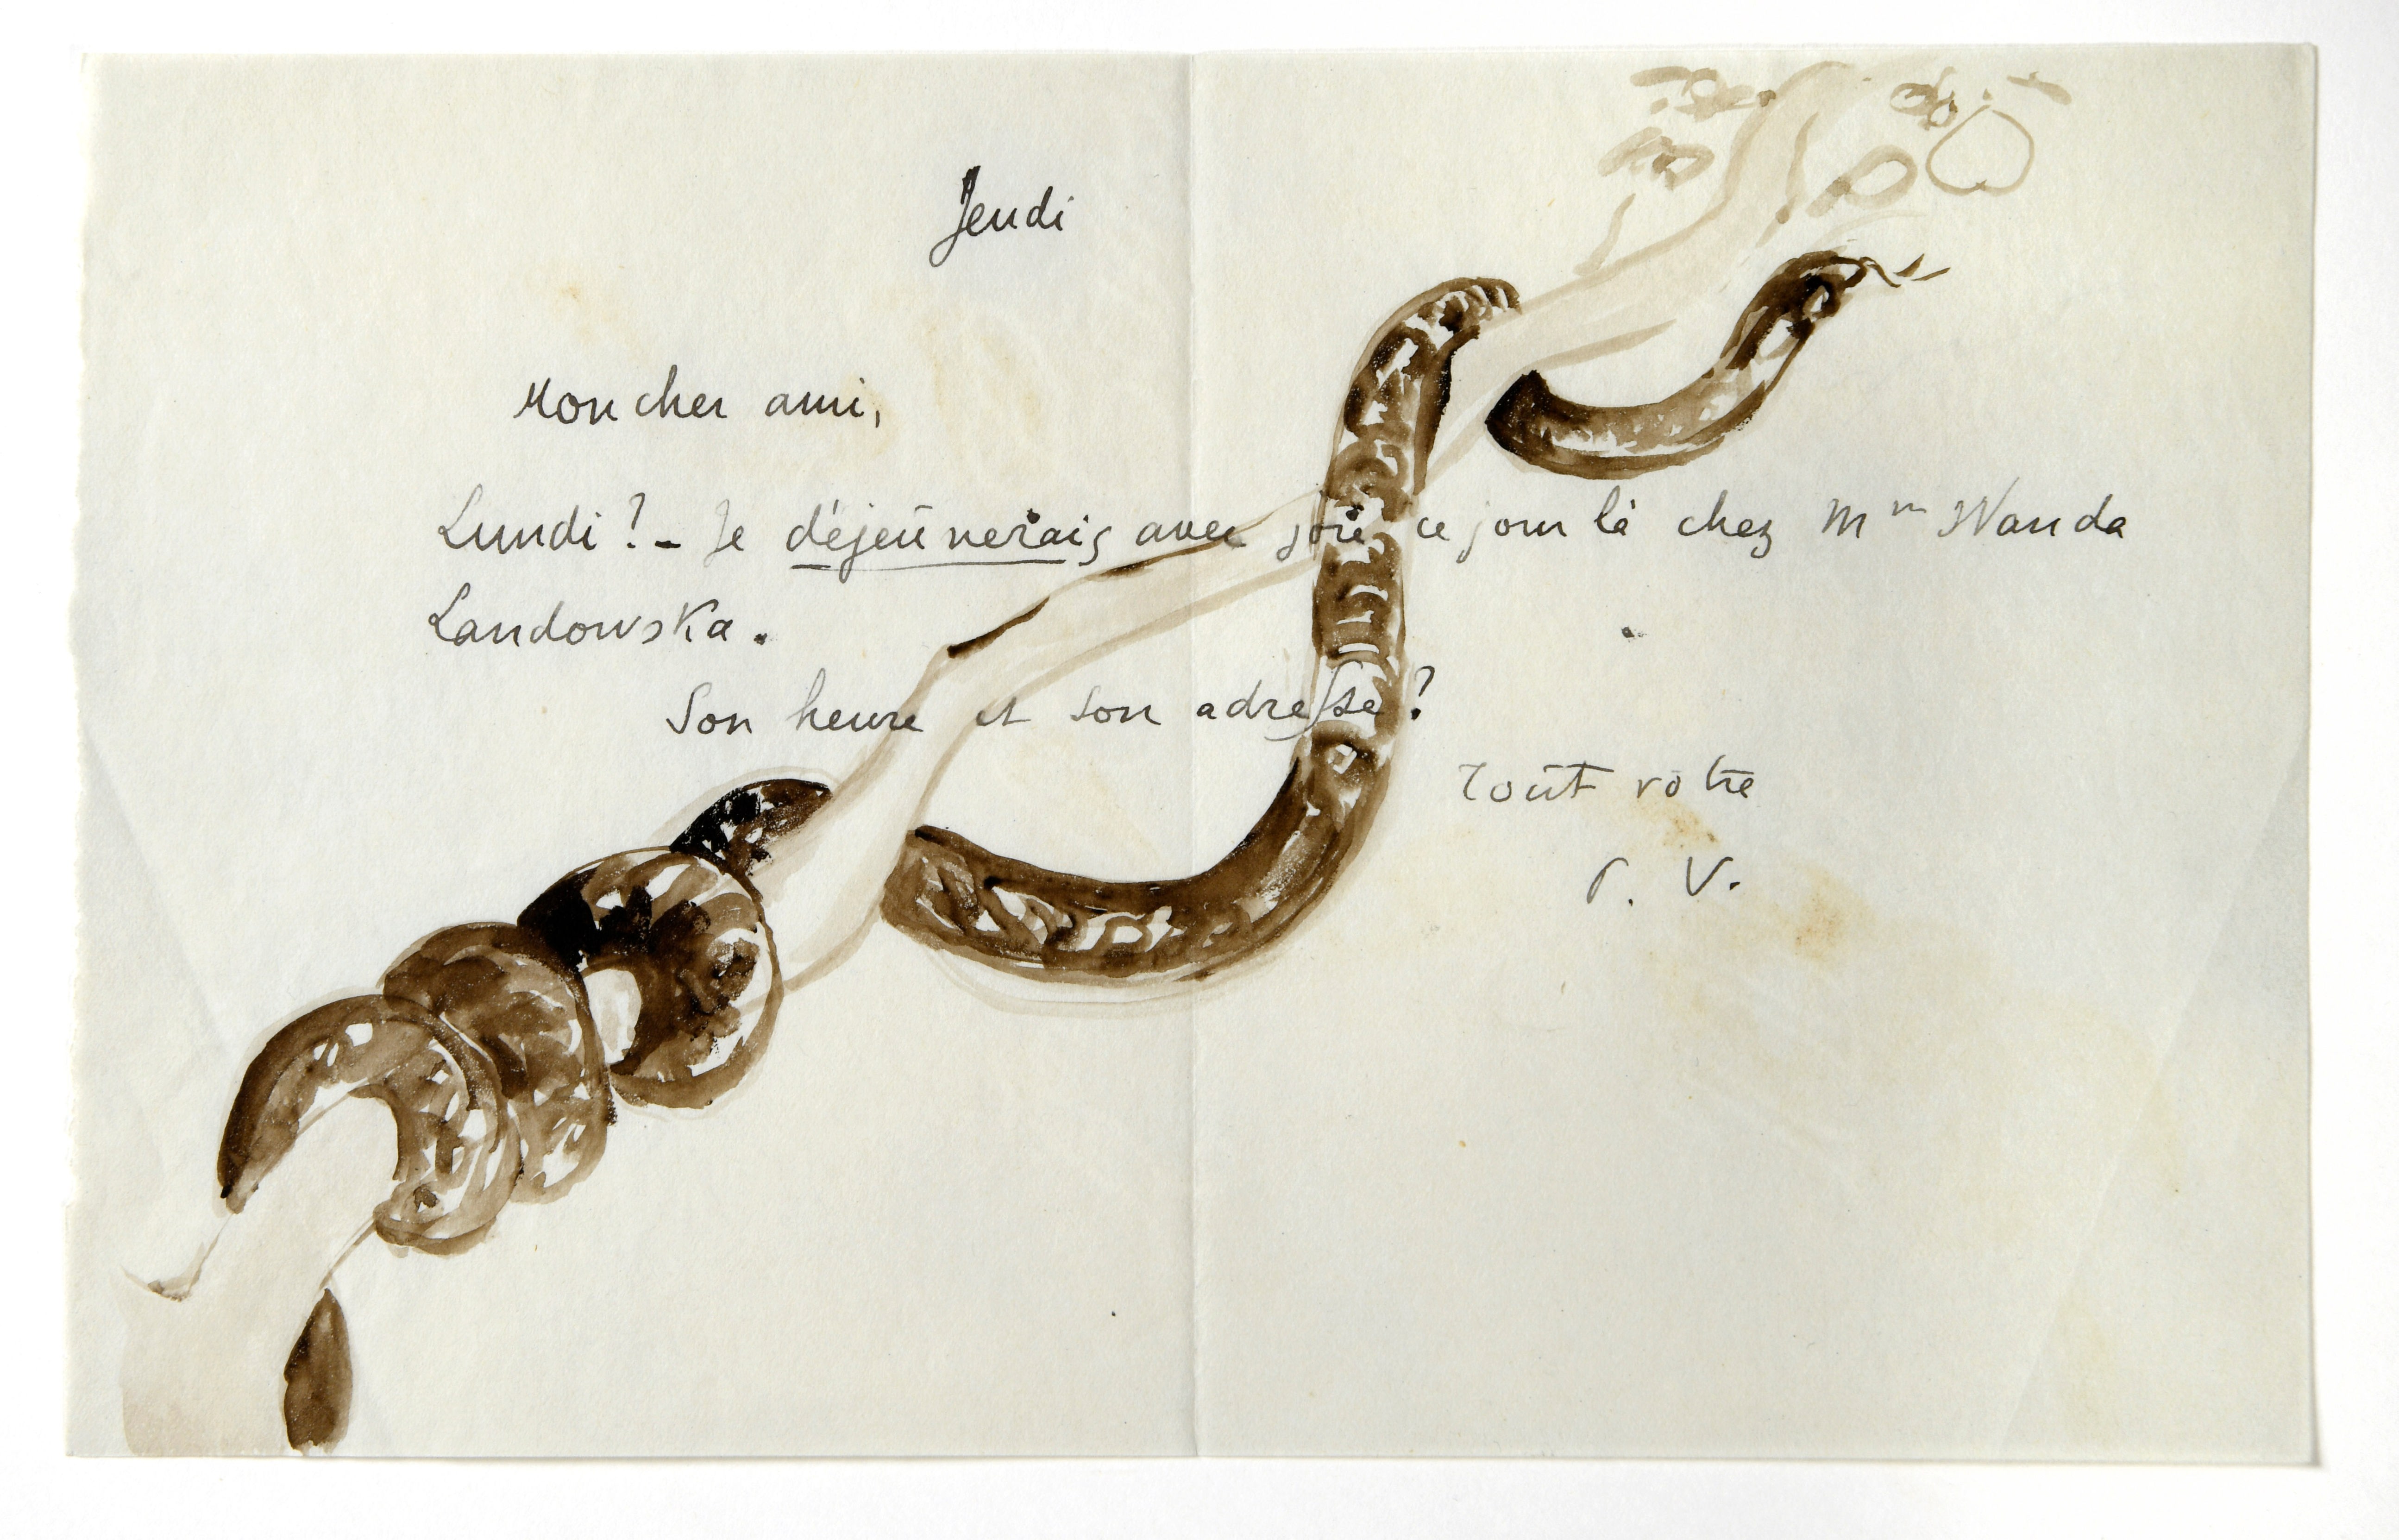 Jeudi
Mon cher ami,
Lundi ? – Je déjeûnerais avec joie ce jour là chez Mme Wanda
Landowska.
Son heure et son adresse ?
Tout vôtre
P. V.